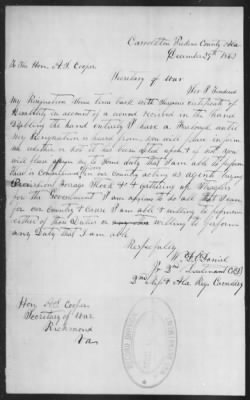 Carrollton Pickens County Ala
December 29th 1863
To the Hon. A. S. Cooper
Secretary of War
Sir I tendered
My Resignation Some time back with Surgeons certificate of
Disability on account of a wound received in the hand
disabling the hand entirely I have a Personal
My Resignation is heard from you will please inform
me whether or not it has been acted upon & if not you
will please assign me to Some duty that I am able to perform
There is Commissary in our County acting as agents buying
Provisions Forage Stock & gathering up Straglers
for the Government I am anxious to do all that I can
for our Country & Cause I am able & willing to perform
either of those Duties or willing to perform
any Duty that I am able
Respectfully
Daniel
Jr 2nd Lieutenant Co
2nd Ala Reg Cavalry
Hon. A S Cooper
Secretary of War
Richmond
Va